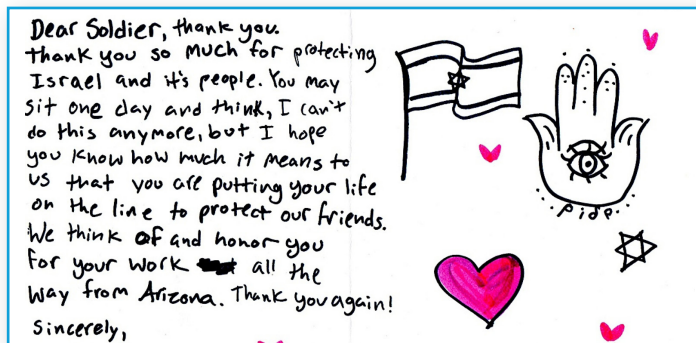 Dear Soldier, thank you.
Thank you so much for protecting
Israel and it's people. You may
sit one day and think, I can't
do this anymore, but I hope
you know how much it means to
us that you are putting your life
on the line to protect our friends.
We think of and honor you
for your work all the
way from Arizona. Thank you again!
Sincerely,